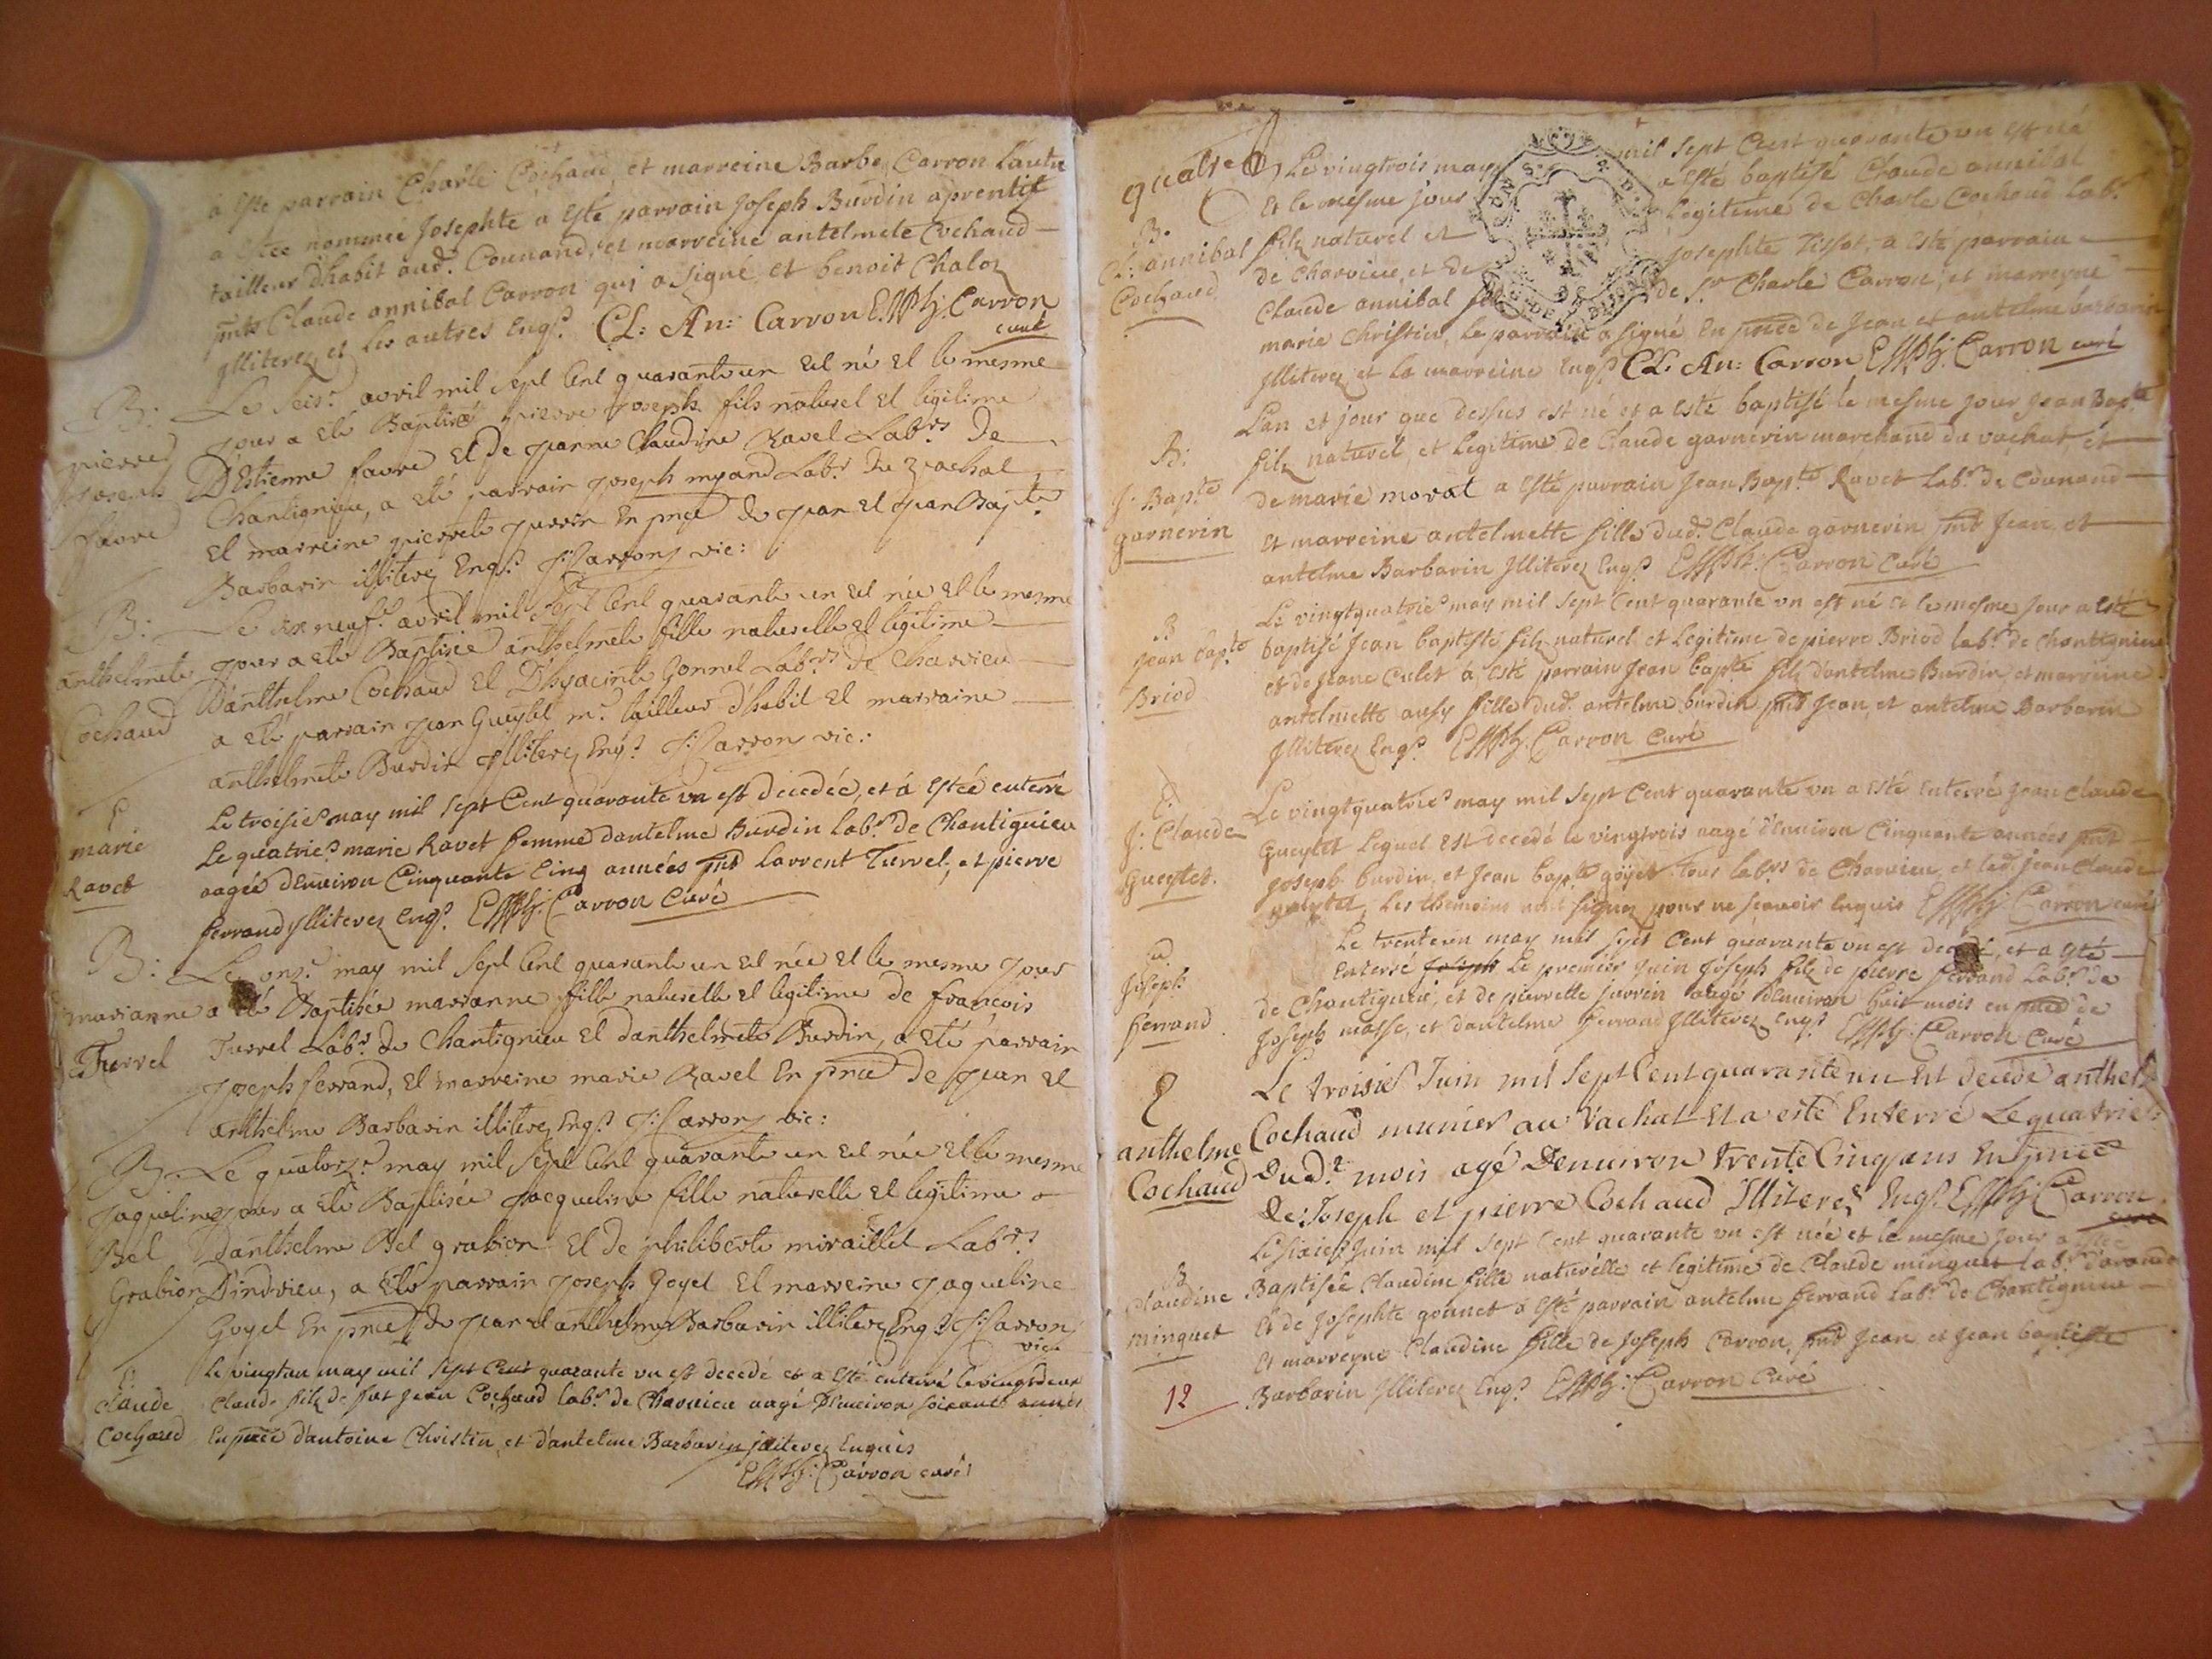 a este parrain Charle Cochaud, et marreine Barbe Carron Lautre
a estee nommée Josephte a esté parrain Joseph Burdin aprentif
tailleur dhabit aud. Counand, et marreine antelmete Cochaud
pnts Claude annibal Carron qui a signé et benoit Chaloz
illiterez et les autres enqs. CL: An: Carron E. Carron
curé
B:
pierre
Joseph
favre
Le seize. avril mil sept cent quarante un est né et le mesme
jour a eté Baptisé pierre joseph fils naturel et legitime
D'Estienne favre et de jeanne Claudine Ravet Labrs. De
Chantignieu, a eté parrain joseph myand Labr. du vachat
et marreine pierrete jurrin en pnce de jean et jean Bapte.
Barbarin illiterez Enqs. J: Carron vic:
B:
anthelmete
Cochaud
Le dix neuf. avril mil sept cent quarante un est née et le mesme
jour a eté Baptisée anthelmete fille naturelle et legitime
D'anthelme Cochaud et D'hyacinte Gonnet Labrs. de Charvieu
a eté parrain jean Gueytet mc. tailleur d'habit et marraine
anthelmete Burdin illiterez Enqs. J: Carron vic:
E
marie
Ravet
Le troisie. may mil sept Cent quarante vn est decedée, et a estée enterré
Le quatrie. marie Ravet femme dantelme Burdin labr. de Chantignieu
aagée d'enuiron Cinquante Cinq années pnts Laurent Turrel, et pierre
ferrand illiterez Enqs. E. Carron Curé
B:
marianne
Turrel
Le onz. may mil sept cent quarante un est née et le mesme jour
a eté Baptisée marianne fille naturelle et legitime de françois
Turrel Labr. de Chantignieu et danthelmete Burdin, a eté parrain
joseph ferrand, et marreine marie Ravet En pnce de jean et
anthelme Barbarin illiterez Enqs. J: Carron vic:
B:
jaqueline
Bel
Grabion
Le quatorz. may mil sept cent quarante un est née et le mesme
jour a eté Baptisée jacqueline fille naturelle et legitime
D'anthelme Bel grabion et de philiberte miraillet Labrs.
D'indrieu, a eté parrain joseph Goyet et marreine jaqueline
Goyet En pnce de jean et anthelme Barbarin illiterez Enqs. J: Carron
vic:
E:
Claude
Cochaud
Le vingtun may mil sept cent quarante vn est decedé et a esté enterré le vingtdeux
Claude filz de fut Jean Cochaud labr. de Charuieu aagé d'enuiron soixante années
En pnce d'antoine Christin, et d'antelme Barbarin illiterez Enquis
E. Carron curé
quatre
B.
Cl: annibal
Cochaud
Le vingtrois may mil sept Cent quarante vn est né
Et le mesme jour a esté baptisé Claude annibal
filz naturel et legitime de Charle Cochaud labr.
de Charuieu, et de Josephte Tissot, a esté parrain
Claude annibal filz de sr. Charle Carron, et marreyne
marie Christin, le parrain a signé En pnce de Jean et antelme barbarin
illiterez et la marreine enqs. CL. An: Carron E. Carron curé
B:
J. Bapte
garnerin
Lan et jour que dessus est né et a esté baptisé le mesme jour Jean Bapte
filz naturel, et legitime de Claude garnerin marchand du vachat, et
de marie morat a esté parrain Jean Bapte. Ravet labr. de Counand
Et marreine antelmette fille dud. Claude garnerin pnts Jean, et
antelme Barbarin illiterez Enqs. E. Carron Curé
B
Jean bapte
Briod
Le vingtquatrie. may mil sept Cent quarante vn est né et le mesme jour a esté
baptisé Jean baptiste filz naturel et legitime de pierre Briod labr. de Chantignieu
et de Jeane Culet a esté parrain Jean bapte. filz dantelme Burdin, et marreine
antelmette aussy fille dud. antelme burdin pnts Jean, et antelme Barbarin
illiterez Enqs. E. Carron Curé
E.
J: Claude
Gueytet.
Le vingtquatrie. may mil sept Cent quarante vn a esté enterré Jean Claude
Gueytet lequel est decedé le vingtrois aagé d'enuiron Cinquante années pnts
Joseph burdin, et Jean bapte goyet tous labrs de Charuieu, et led. jean Claude
gueytet, les themoins n'ont signez pour ne scauoir enquis E. Carron curé
E
Joseph
ferrand
Le trenteun may mil sept Cent quarante vn est decedé, et a esté
enterré Joseph Le premier juin Joseph filz de pierre ferrand Labr. de
de Chantignieu, et de pierrette jurrin aagé d'enuiron huit mois en pnce de
Joseph masse, et d'antelme ferrand illiterez enqs. E. Carron Curé
E
anthelme
Cochaud
Le troisie. Juin mil sept Cent quarante un Est decedé anthelme
Cochaud munier au vachat Et a esté Enterré Le quatrie.
Dud.t mois agé Denuiron trente Cinq ans En pnce
De Joseph et pierre Cochaud Illiteres Enqs. E. Carron
curé
B
Claudine
minguet
Le sixie. Juin mil sept Cent quarante vn est née et le mesme jour a estée
Baptisée Claudine fille naturelle et legitime de Claude minguet labr.
Et de Josephte gonnet a esté parrain antelme ferrand labr. de Chantignieu
Et marreyne Claudine fille de Joseph Carron, pnts Jean et Jean baptiste
Barbarin illiterez Enqs. E. Carron Curé
12